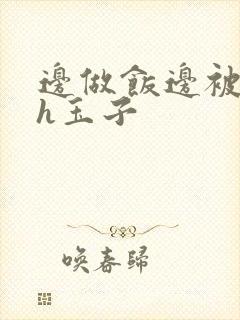 邊做飯邊被
h玉子
喚春歸